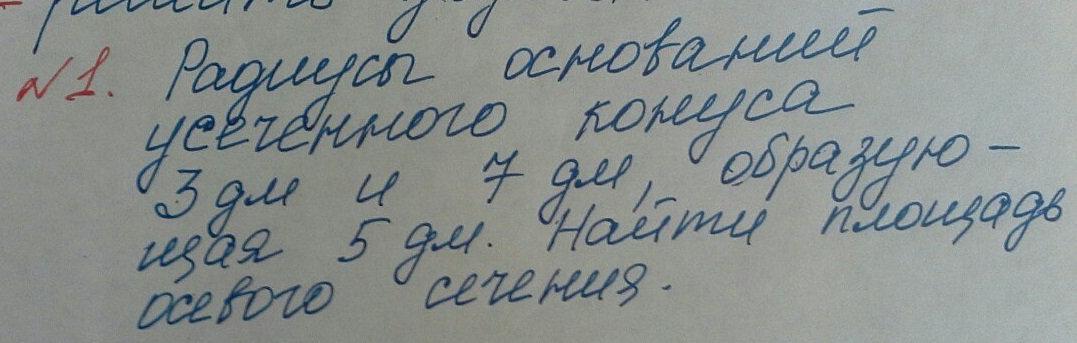 решить
№1. Радиусы оснований
усеченного конуса
3 дм и 7 дм, образую-
щая 5 дм. Найти площадь
осевого сечения.